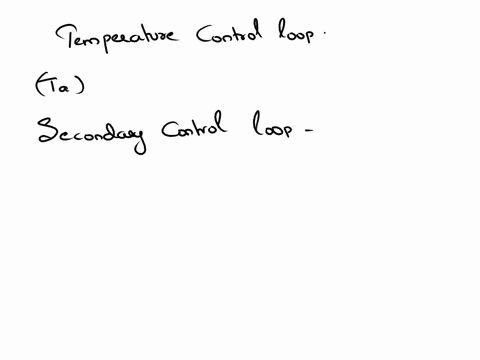 Temperature Control loop.
(Ta)
Secondary Control loop -